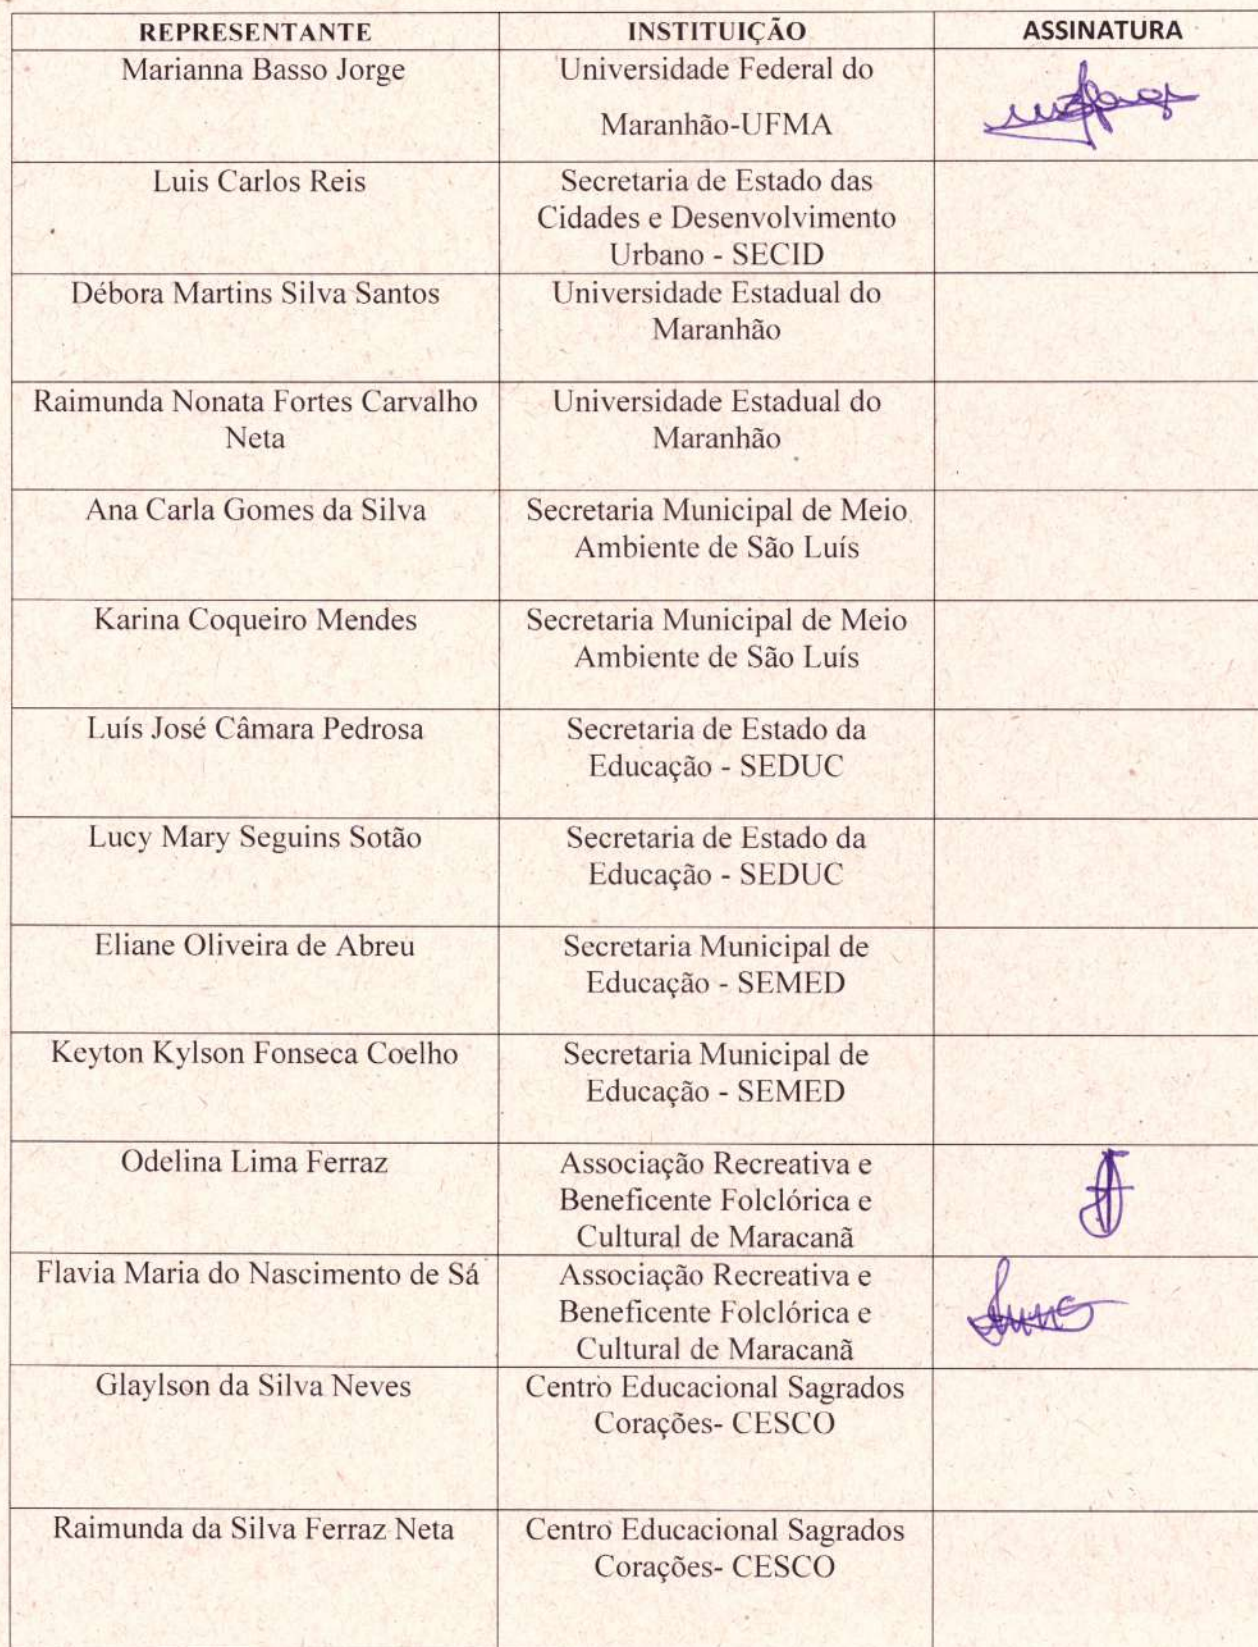 REPRESENTANTE INSTITUIÇÃO ASSINATURA
Marianna Basso Jorge Universidade Federal do
Maranhão-UFMA
Luis Carlos Reis Secretaria de Estado das
Cidades e Desenvolvimento
Urbano - SECID
Débora Martins Silva Santos Universidade Estadual do
Maranhão
Raimunda Nonata Fortes Carvalho Universidade Estadual do
Neta Maranhão
Ana Carla Gomes da Silva Secretaria Municipal de Meio
Ambiente de São Luís
Karina Coqueiro Mendes Secretaria Municipal de Meio
Ambiente de São Luís
Luís José Câmara Pedrosa Secretaria de Estado da
Educação - SEDUC
Lucy Mary Seguins Sotão Secretaria de Estado da
Educação - SEDUC
Eliane Oliveira de Abreu Secretaria Municipal de
Educação - SEMED
Keyton Kylson Fonseca Coelho Secretaria Municipal de
Educação - SEMED
Odelina Lima Ferraz Associação Recreativa e
Beneficente Folclórica e
Cultural de Maracanã
Flavia Maria do Nascimento de Sá Associação Recreativa e
Beneficente Folclórica e
Cultural de Maracanã
Glaylson da Silva Neves Centro Educacional Sagrados
Corações- CESCO
Raimunda da Silva Ferraz Neta Centro Educacional Sagrados
Corações- CESCO